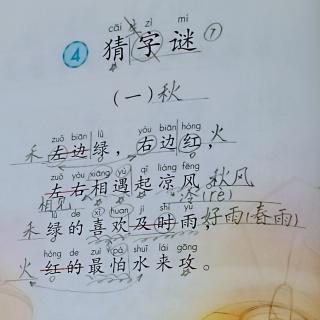 cāi zì mí
④ 猜字谜 ⑦
(一) 秋
zuǒ biān lǜ yòu biān hóng
禾 左边绿,右边红,火
zuǒ yòu xiāng yù qǐ liáng fēng
左右相遇起凉风。秋风
相见 冷(rè)
lǜ de xǐ huan jí shí yǔ
禾 绿的喜欢及时雨,好雨(春雨)
hóng de zuì pà shuǐ lái gōng
火 红的最怕水来攻。